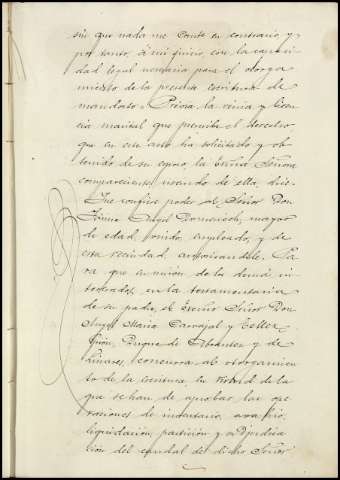 sin que nada me conste en contrario, y
por tanto, á mi juicio, con la capaci-
dad legal necesaria para el otorga-
miento de la presente escritura de
mandato. Previa la venia y licen-
cia marital que prescribe el derecho,
que en este acto ha solicitado y ob-
tenido de su esposo, la Excma. Señora
compareciente, usando de ella, dice:
Que confiere poder al Señor Don
Angel Domenech, mayor
de edad, casado, empleado, y de
esta vecindad, autorizándole, Pa-
ra que en unión de los demás in-
teresados, en la testamentaria
de su padre, el Excmo. Señor Don
Angel Maria Carvajal y Tellez
Girón, Duque de Abrantes y de
Linares, concurra al otorgamien-
to de la escritura, en virtud de la
que se han de aprobar las ope-
raciones de inventario, avalúo,
liquidación, partición y adjudica-
ción del caudal del dicho Señor